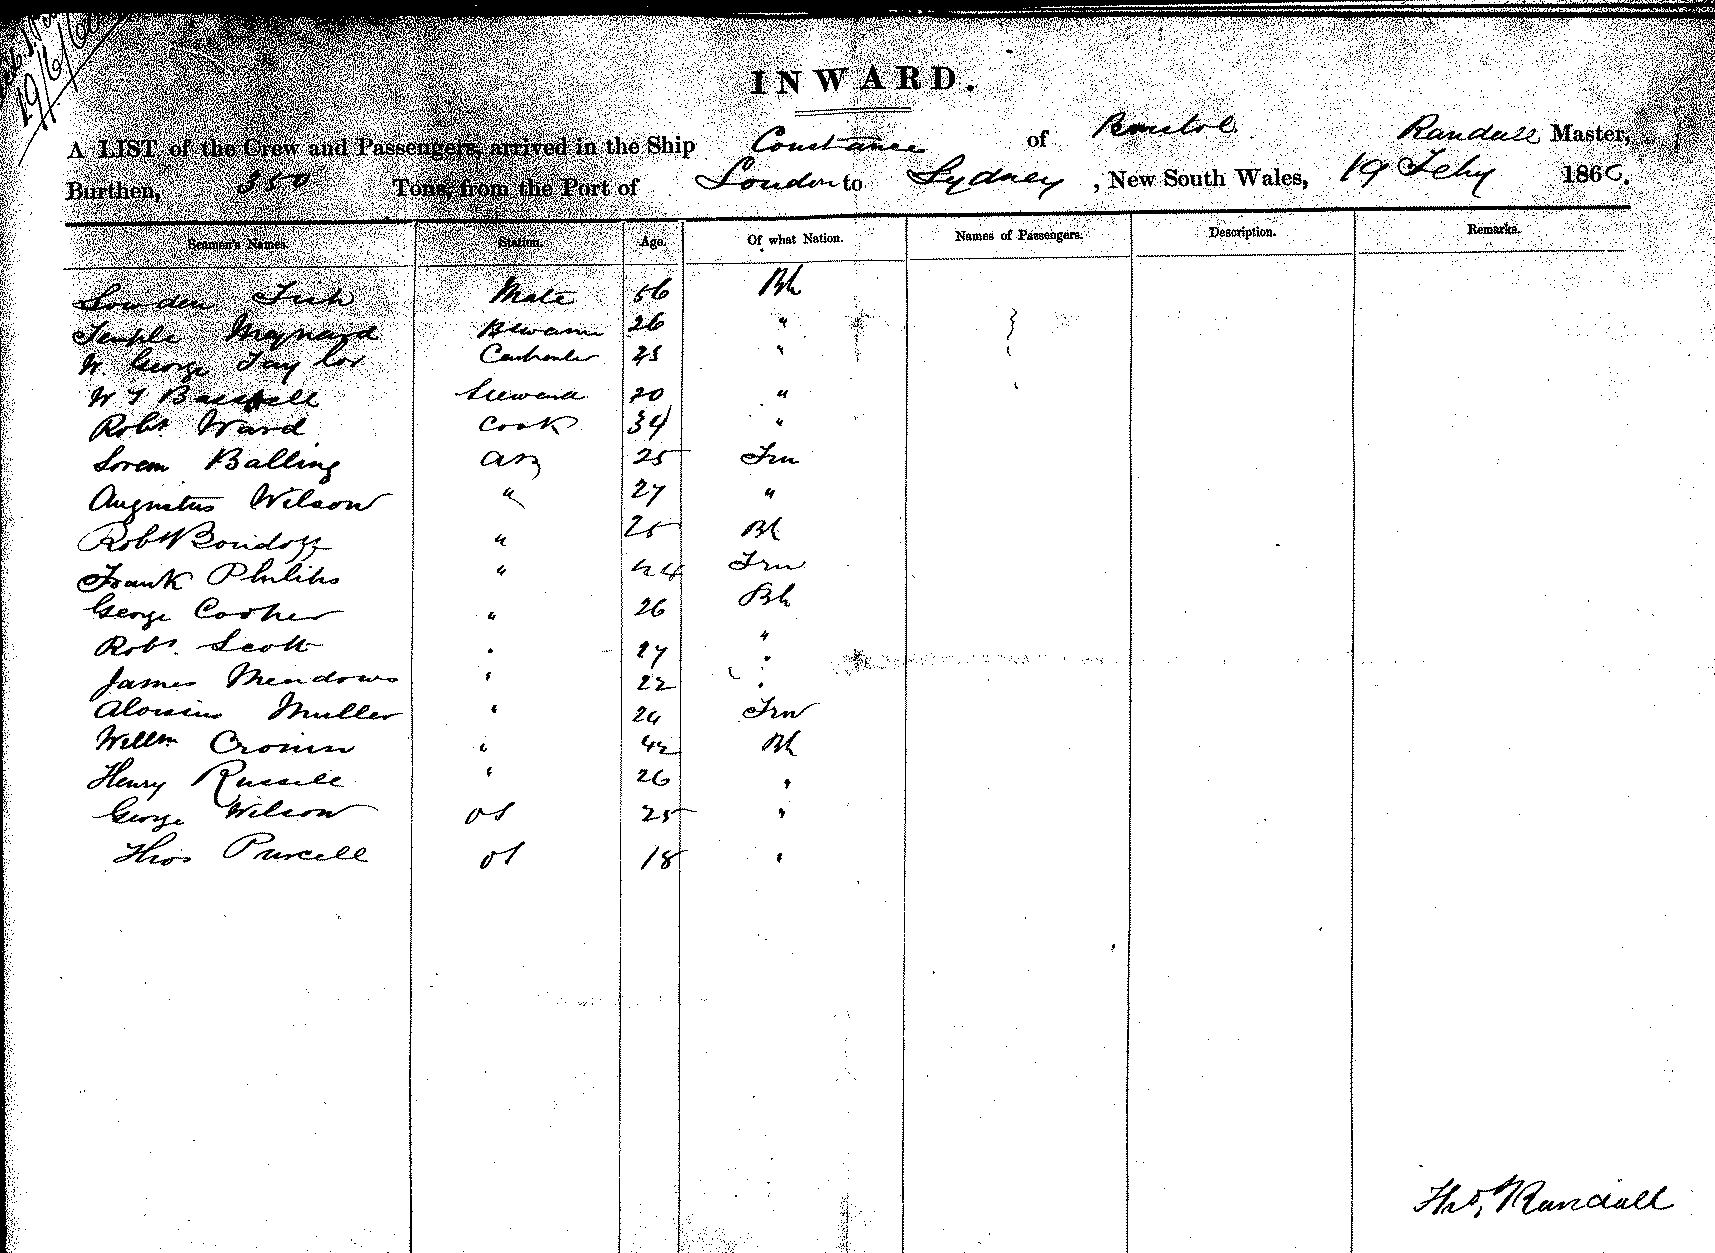 19/6/60
INWARD.
A LIST of the Crew and Passengers, arrived in the Ship Constance of Bristol Randall Master,
Burthen, 350 Tons, from the Port of London to Sydney, New South Wales, 19 Feby 1860.
Seamen's Names. Station. Age. Of what Nation. Names of Passengers. Description. Remarks.
Lowden Fish Mate 56 Bh
Temple Maynard 26 "
W. George Taylor Carpenter 25 "
W T Steward 20 "
Robt Ward Cook 34 "
Soren Balling AB 25 Frn
Augustus Wilson " 27 "
Robt " 25 Bh
Frank Philips " 44 Frn
George Cooper " 26 Bh
Robt. Scott " 27 "
James Meadows " 22 "
Aloisius Muller " 24 Frn
Willm Cronin " 42 Bh
Henry Russell " 26 "
George Wilson OS 25 "
Thos Purcell OS 18 "
Thos. Randall